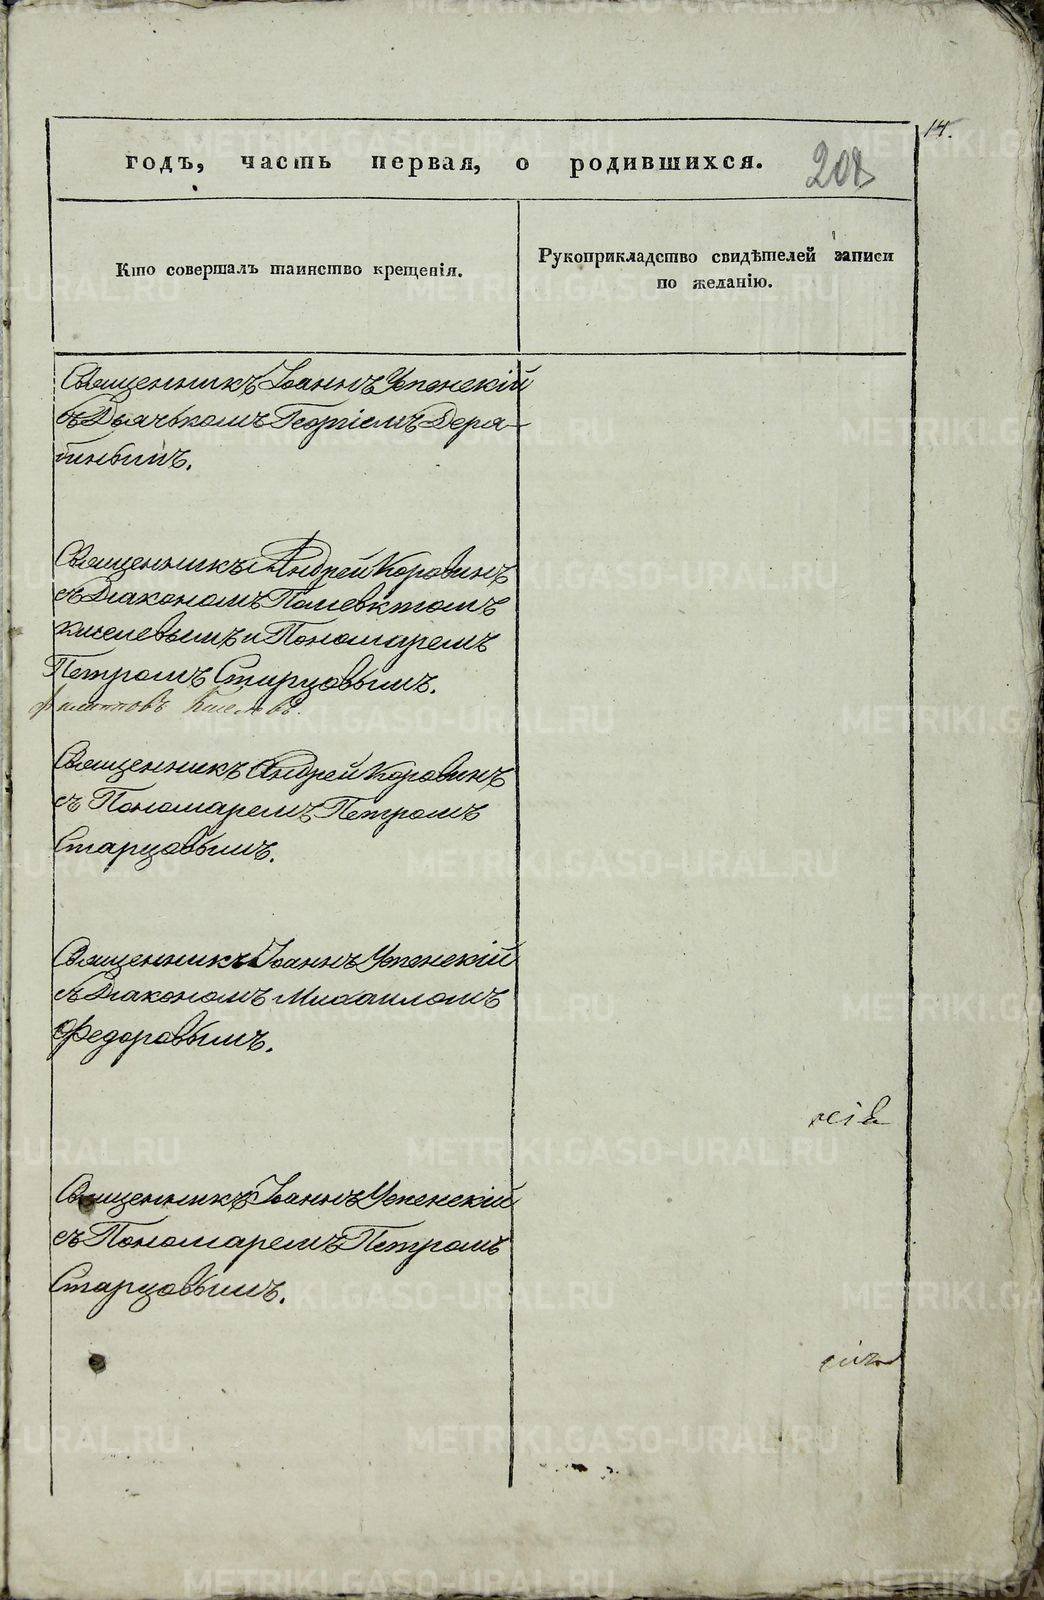 14.
годъ, часть первая, о родившихся.
208
Кто совершалъ таинство крещенія.
Рукоприкладство свидѣтелей записи
по желанію.
Священникъ Іоаннъ Успенскій
съ Дьячькомъ Георгіемъ Деря-
бинымъ.
Священникъ Андрей Коровинъ
съ Діакономъ Полевктомъ
Киселевымъ и Пономаремъ
Петромъ Старцовымъ.
Священникъ Андрей Коровинъ
съ Пономаремъ Петромъ
Старцовымъ.
Священникъ Іоаннъ Успенскій
съ Діакономъ Михаиломъ
Федоровымъ.
Священникъ Іоаннъ Успенскій
съ Пономаремъ Петромъ
Старцовымъ.
METRIKI.GASO-URAL.RU